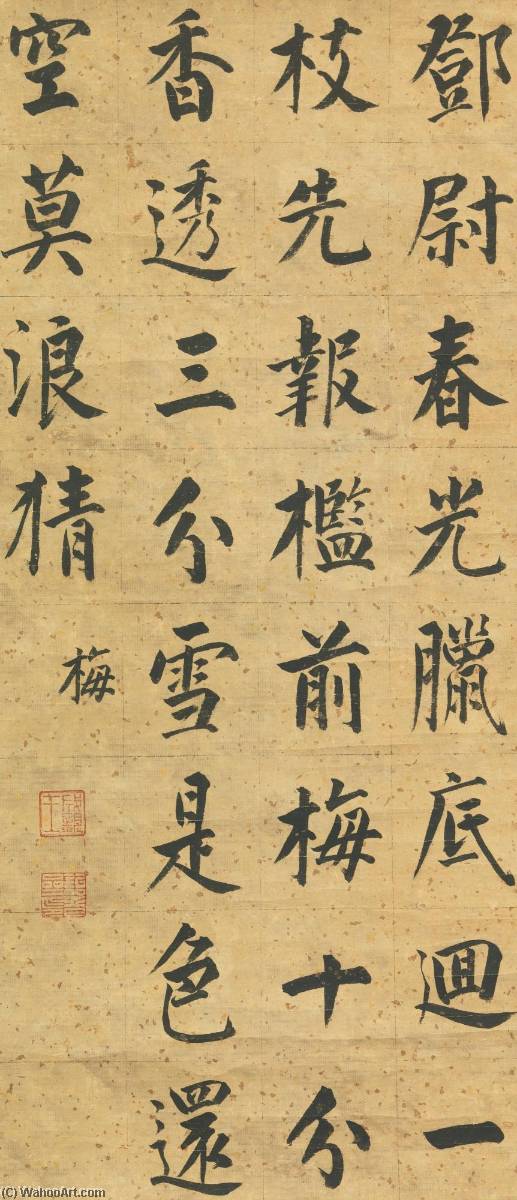 鄧尉春光臘底迴一
枝先報檻前梅十分
香透三分雪是色還
空莫浪猜
梅
(C) WahooArt.com